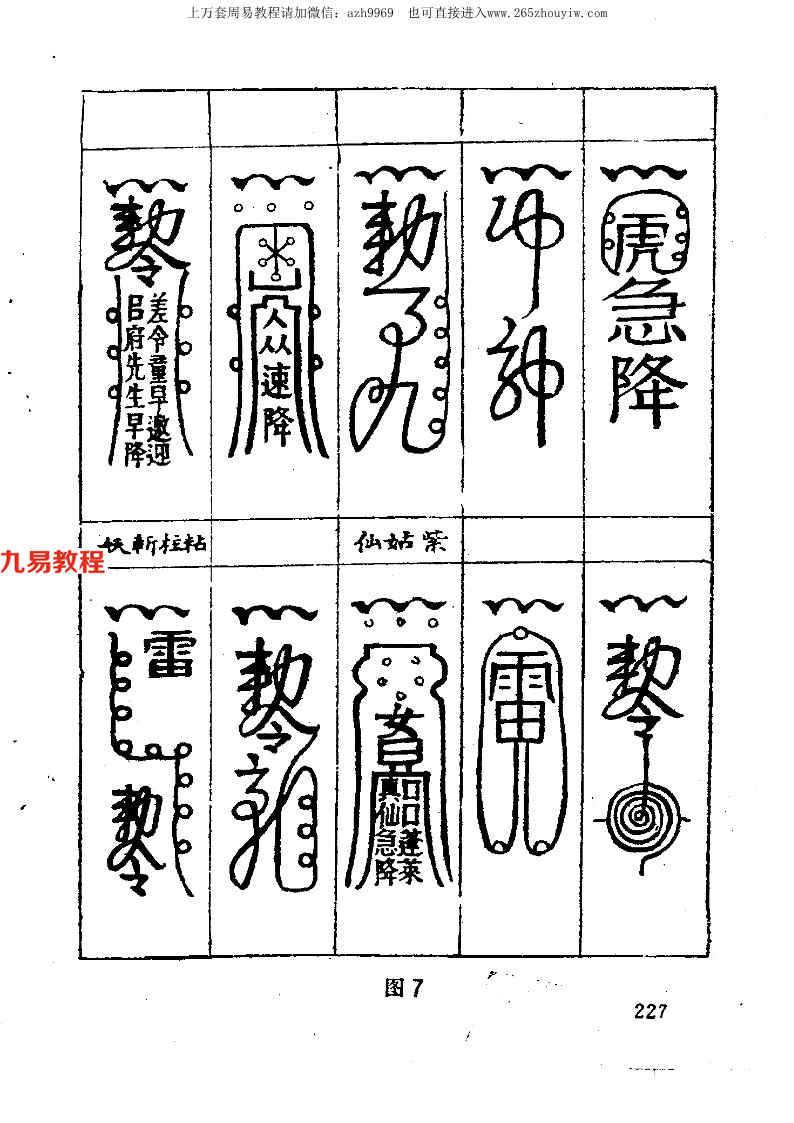 上万套周易教程请加微信：azh9969 也可直接进入www.265zhouyiw.com
虎
急
降
勅
人从
速
降
勅令
差令童早邀迎
吕府先生早降
紫姑仙
粘柱斬妖
九易教程
勅令
雷
女
口口蓬萊
真仙急降
勅令
雷
勅令
图7
227